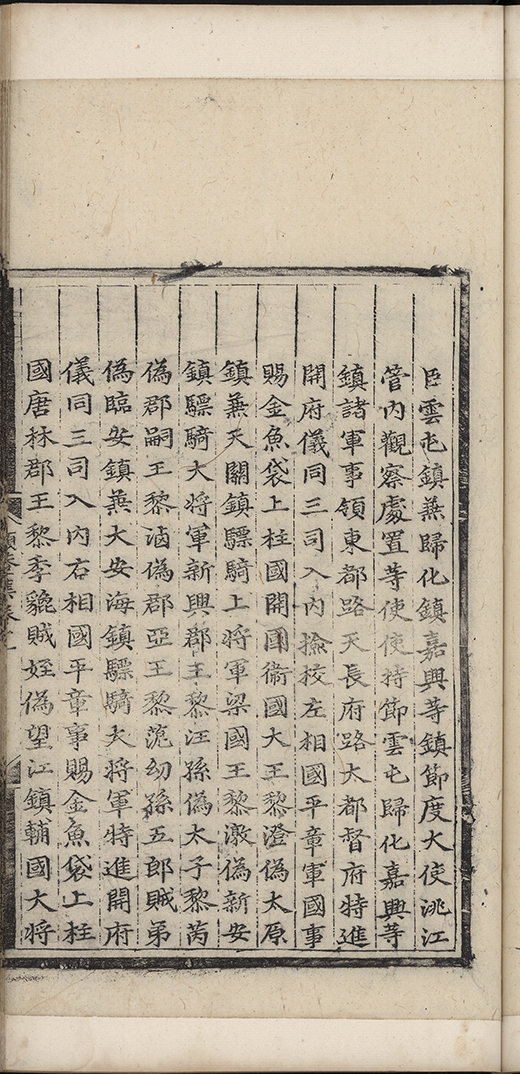 臣雲屯鎮兼歸化鎮嘉興等鎮節度大使洮江
管內觀察處置等使使持節雲屯歸化嘉興等
鎮諸軍事領東都路天長府路大都督府特進
開府儀同三司入內撿挍左相國平章軍國事
賜金魚袋上柱國開國衞國大王黎澄偽太原
鎮兼天關鎮驃騎上將軍梁國王黎激偽新安
鎮驃騎大將軍新興郡王黎汪孫偽太子黎芮
偽郡嗣王黎滷偽郡亞王黎范幼孫五郎賊弟
偽臨安鎮兼大安海鎮驃騎大將軍特進開府
儀同三司入內右相國平章事賜金魚袋上柱
國唐林郡王黎季貔賊姪偽望江鎮輔國大將